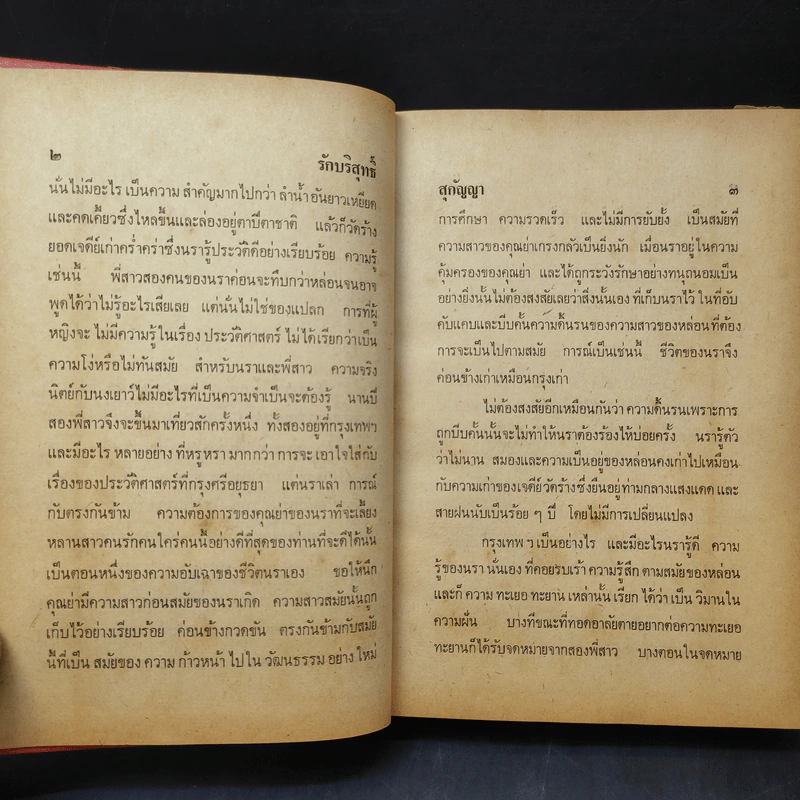 ๒
รักบริสุทธิ์
นั่นไม่มีอะไร เป็นความ สำคัญมากไปกว่า ลำน้ำ อันยาวเหยียด
และคดเคี้ยวซึ่งไหลขึ้นและล่องอยู่ตาปีตาชาติ แล้วก็วัดร้าง
ยอดเจดีย์เก่าคร่ำคร่าซึ่งนรารู้ประวัติดีอย่างเรียบร้อย ความรู้
เช่นนี้ พี่สาวสองคนของนราค่อนจะทึบกว่าหล่อนจนอาจ
พูดได้ว่าไม่รู้อะไรเสียเลย แต่นั่นไม่ใช่ของแปลก การที่ผู้
หญิงจะ ไม่มีความรู้ในเรื่อง ประวัติศาสตร์ ไม่ได้เรียกว่าเป็น
ความโง่หรือไม่ทันสมัย สำหรับนราและพี่สาว ความจริง
นิตย์กับนงเยาว์ไม่มีอะไรที่เป็นความจำเป็นจะต้องรู้ นานปี
สองพี่สาวจึงจะขึ้นมาเที่ยวสักครั้งหนึ่ง ทั้งสองอยู่ที่กรุงเทพฯ
และมีอะไร หลายอย่าง ที่หรูหรา มากกว่า การจะ เอาใจใส่กับ
เรื่องของประวัติศาสตร์ที่กรุงศรีอยุธยา แต่นราเล่า การณ์
กับตรงกันข้าม ความต้องการของคุณย่าของนราที่จะเลี้ยง
หลานสาวคนรักคนใคร่คนนี้อย่างดีที่สุดของท่านที่จะดีได้นั้น
เป็นตอนหนึ่งของความอับเฉาของชีวิตนราเอง ขอให้นึก
คุณย่ามีความสาวก่อนสมัยของนราเกิด ความสาวสมัยนั้นถูก
เก็บไว้อย่างเรียบร้อย ค่อนข้างกวดขัน ตรงกันข้ามกับสมัย
นี้ที่เป็น สมัยของ ความ ก้าวหน้า ไปใน วัฒนธรรม อย่าง ใหม่
สุกัญญา
๓
การศึกษา ความรวดเร็ว และไม่มีการยับยั้ง เป็นสมัยที่
ความสาวของคุณย่าเกรงกลัวเป็นยิ่งนัก เมื่อนราอยู่ในความ
คุ้มครองของคุณย่า และได้ถูกระวังรักษาอย่างทนุถนอมเป็น
อย่างยิ่งนั้นไม่ต้องสงสัยเลยว่าสิ่งนั้นเอง ที่เก็บนราไว้ ในที่อับ
คับแคบและบีบคั้นความดิ้นรนของความสาวของหล่อน ที่ต้อง
การจะเป็นไปตามสมัย การณ์เป็นเช่นนี้ ชีวิตของนราจึง
ค่อนข้างเก่าเหมือนกรุงเก่า
ไม่ต้องสงสัยอีกเหมือนกันว่า ความดิ้นรนเพราะการ
ถูกบีบคั้นนั้นจะไม่ทำให้นราต้องร้องไห้บ่อยครั้ง นรารู้ตัว
ว่าไม่นาน สมองและความเป็นอยู่ของหล่อนคงเก่าไปเหมือน
กับความเก่าของเจดีย์วัดร้าง ซึ่งยืนอยู่ท่ามกลางแสงแดด และ
สายฝนนับเป็นร้อย ๆ ปี โดยไม่มีการเปลี่ยนแปลง
กรุงเทพ ฯ เป็นอย่างไร และมีอะไรนรารู้ดี ความ
รู้ของนรา นั่นเอง ที่คอยรบเร้า ความรู้สึก ตามสมัยของหล่อน
และก็ ความ ทะเยอ ทะยาน เหล่านั้น เรียก ได้ว่า เป็น วิมานใน
ความฝัน บางทีขณะที่ทอดอาลัยตายอยากต่อความทะเยอ
ทะยานก็ได้รับจดหมายจากสองพี่สาว บางตอนในจดหมาย